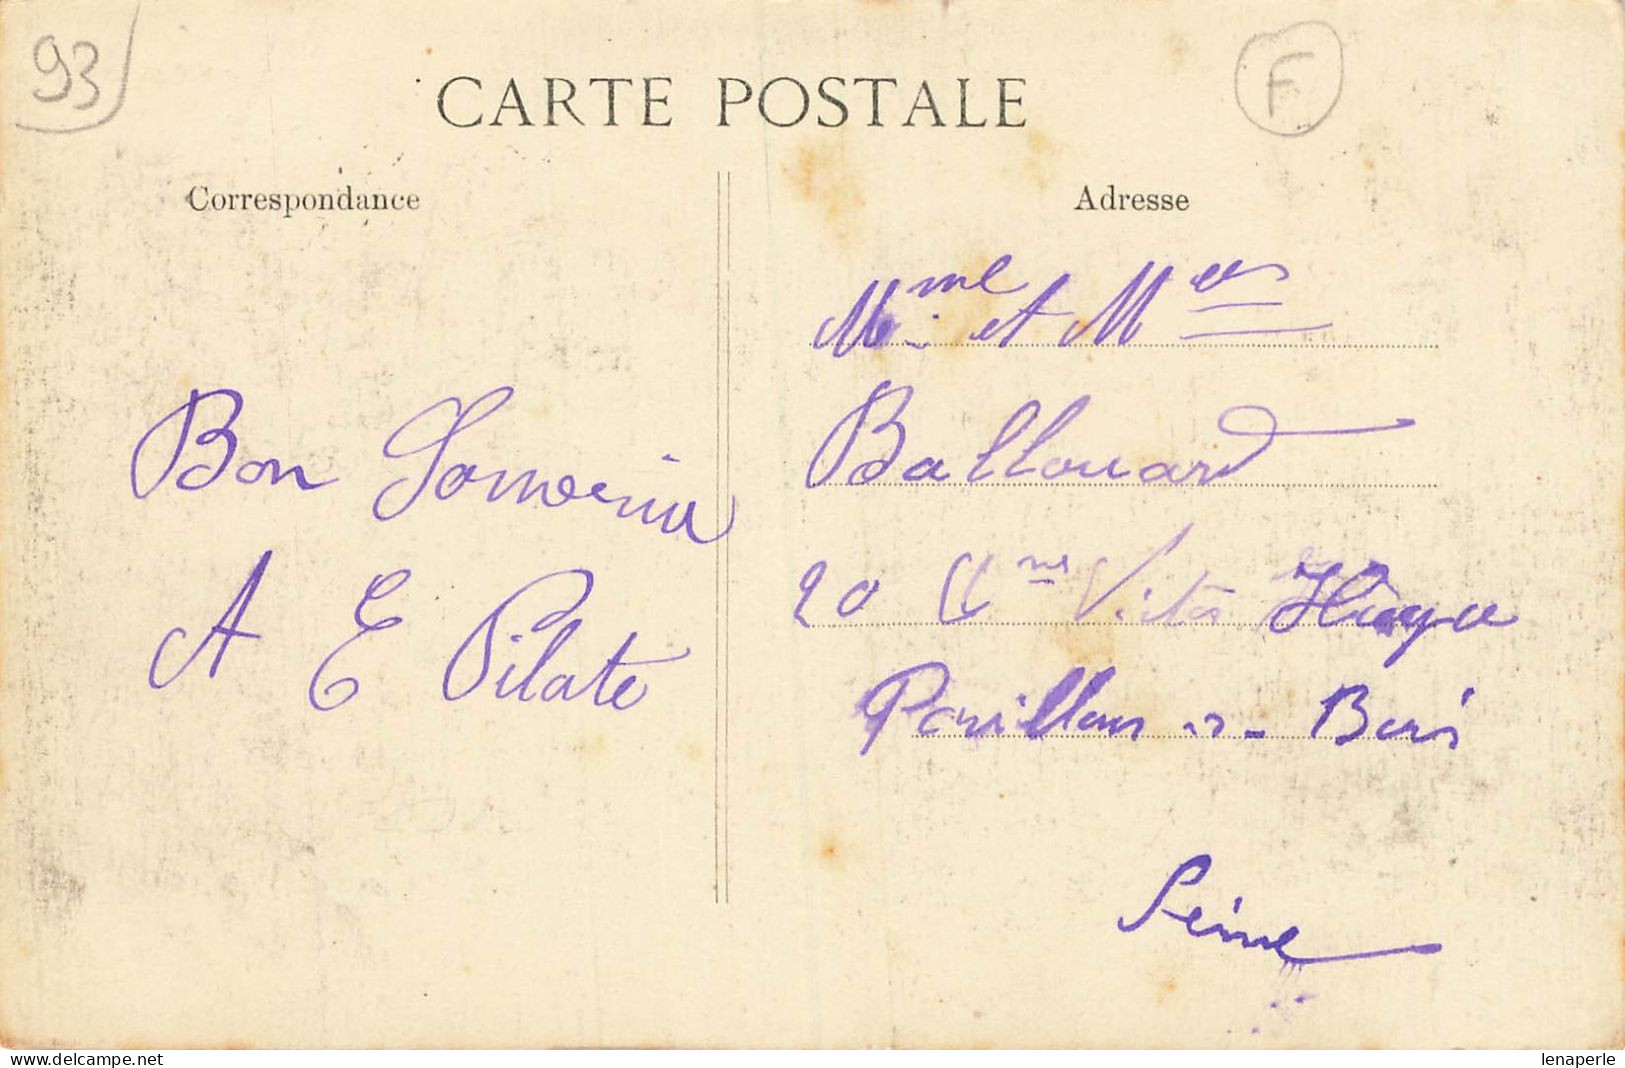 93
CARTE POSTALE
F
Correspondance
Bon Souvenir
A E Pilate
Adresse
Mme et M
Ballouard
20 Victor Hugo
Pavillons-s-Bois
Seine
delcampe.net
lenaperle